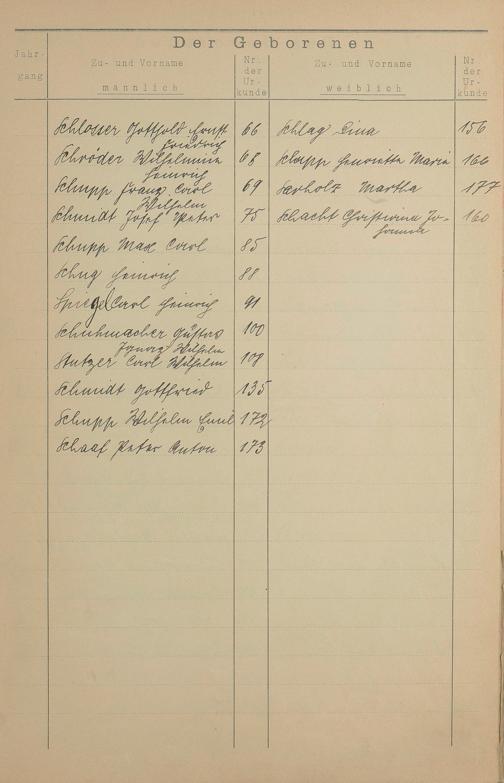 Der Geborenen
Jahr-
gang
Zu- und Vorname
männlich
Nr.
der
Ur-
kunde
Zu- und Vorname
weiblich
Nr
der
Ur-
kunde
Schlosser Gotthold Ernst 66
Friedrich
Schröder Wilhelm 68
Heinrich
Schupp Franz Carl 69
Wilhelm
Schmidt Josef Peter 75
Schupp Max Carl 85
Schug Heinrich 88
Spiegel Carl Heinrich 91
Schuhmacher Gustav 100
Wilhelm
Stutzer Carl Wilhelm 108
Schmidt Gottfried 135
Schupp Wilhelm Emil 172
Schaaf Peter Anton 173
Schlag Lina 156
Schupp Henriette Maria 166
Martha 177
Schacht Christina Jo- 160
hanna